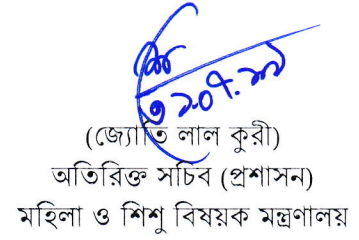 (জ্যোতি লাল কুরী)
অতিরিক্ত সচিব (প্রশাসন)
মহিলা ও শিশু বিষয়ক মন্ত্রণালয়